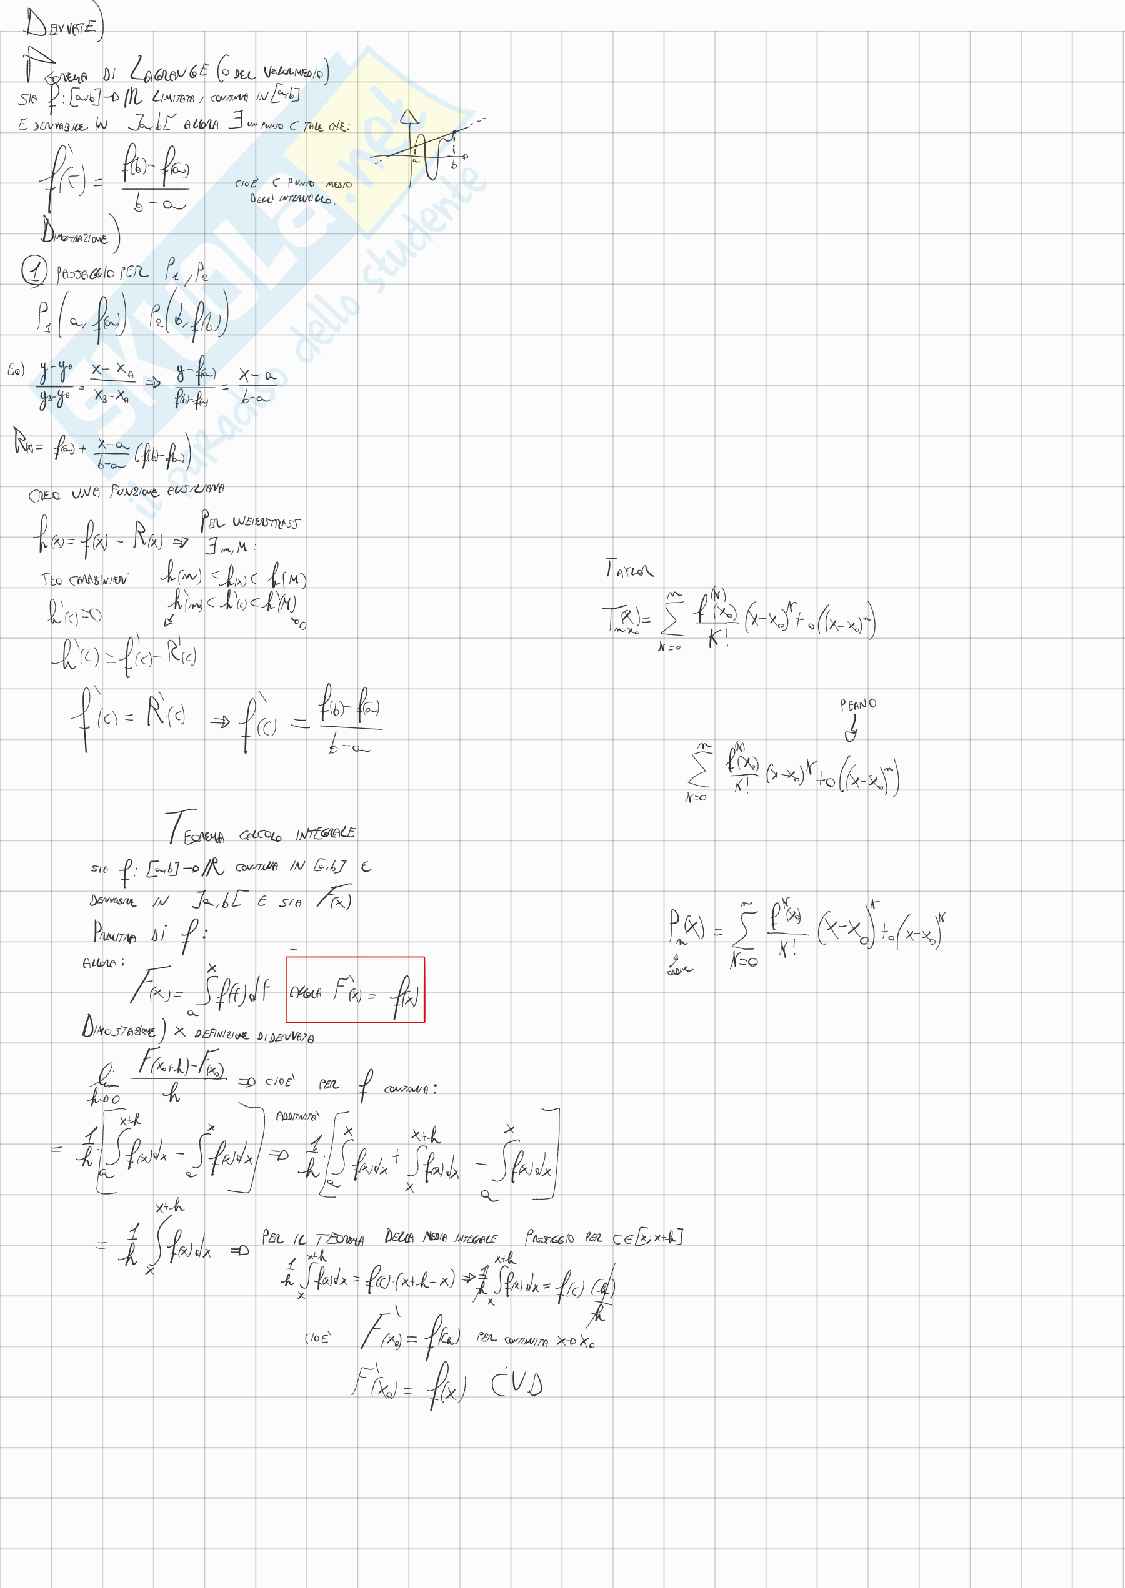 DERIVATE)
TEOREMA DI LAGRANGE (O DEL VALOR MEDIO)
SIA f: [a,b] → IR LIMITATA, CONTINUA IN [a,b]
E DERIVABILE IN ]a,b[ ALLORA ∃ UN PUNTO C TALE CHE:
f'(c) = (f(b) - f(a)) / (b - a)
CIOÈ C PUNTO MEDIO
DELL'INTERVALLO.
a b
DIMOSTRAZIONE)
① PASSAGGIO PER P1, P2
P1 (a, f(a)) P2 (b, f(b))
(y - y0) / (yB - y0) = (x - xA) / (xB - xA) ⇒ (y - f(a)) / (f(b) - f(a)) = (x - a) / (b - a)
R(x) = f(a) + (x - a)/(b - a) (f(b) - f(a))
CREO UNA FUNZIONE AUSILIARIA
h(x) = f(x) - R(x) ⇒ PER WEIERSTRASS
∃ m, M:
h(m) < h(x) < h(M)
h'(c) = 0 h'(m) < h'(c) < h'(M)
h'(c) = f'(c) - R'(c)
f'(c) = R'(c) ⇒ f'(c) = (f(b) - f(a)) / (b - a)
TAYLOR
T(x) = Σ K=0 n f^(K)(x0)/K! (x - x0)^K + o((x - x0)^n)
PEANO
Σ K=0 n f^K(x0)/K! (x - x0)^K + o((x - x0)^n)
Pn(x) = Σ K=0 n f^K(x0)/K! (x - x0)^K + o(x - x0)^K
TEOREMA CALCOLO INTEGRALE
SIA f: [a,b] → IR CONTINUA IN [a,b] E
DERIVABILE IN ]a,b[ E SIA F(x)
PRIMITIVA DI f:
ALLORA:
F(x) = ∫ a x f(t) dt ALLORA F'(x) = f(x)
DIMOSTRAZIONE) X DEFINIZIONE DI DERIVATA
lim h→0 (F(x0+h) - F(x0)) / h ⇒ CIOÈ PER f CONTINUA:
= 1/h [∫ a x+h f(x)dx - ∫ a x f(x)dx] ⇒ ADDITIVITÀ 1/h [∫ a x f(x)dx + ∫ x x+h f(x)dx - ∫ a x f(x)dx]
= 1/h ∫ x x+h f(x)dx ⇒ PER IL TEOREMA DELLA MEDIA INTEGRALE PASSAGGIO PER C∈[x, x+h]
1/h ∫ x x+h f(x)dx = f(c)·(x+h-x) ⇒ 1/h ∫ x x+h f(x)dx = f(c) (h)/h
CIOÈ F'(x0) = f(x0) PER CONTINUITÀ X→X0
F'(x0) = f(x) CVD
SKUOLA.net
il paradiso dello studente